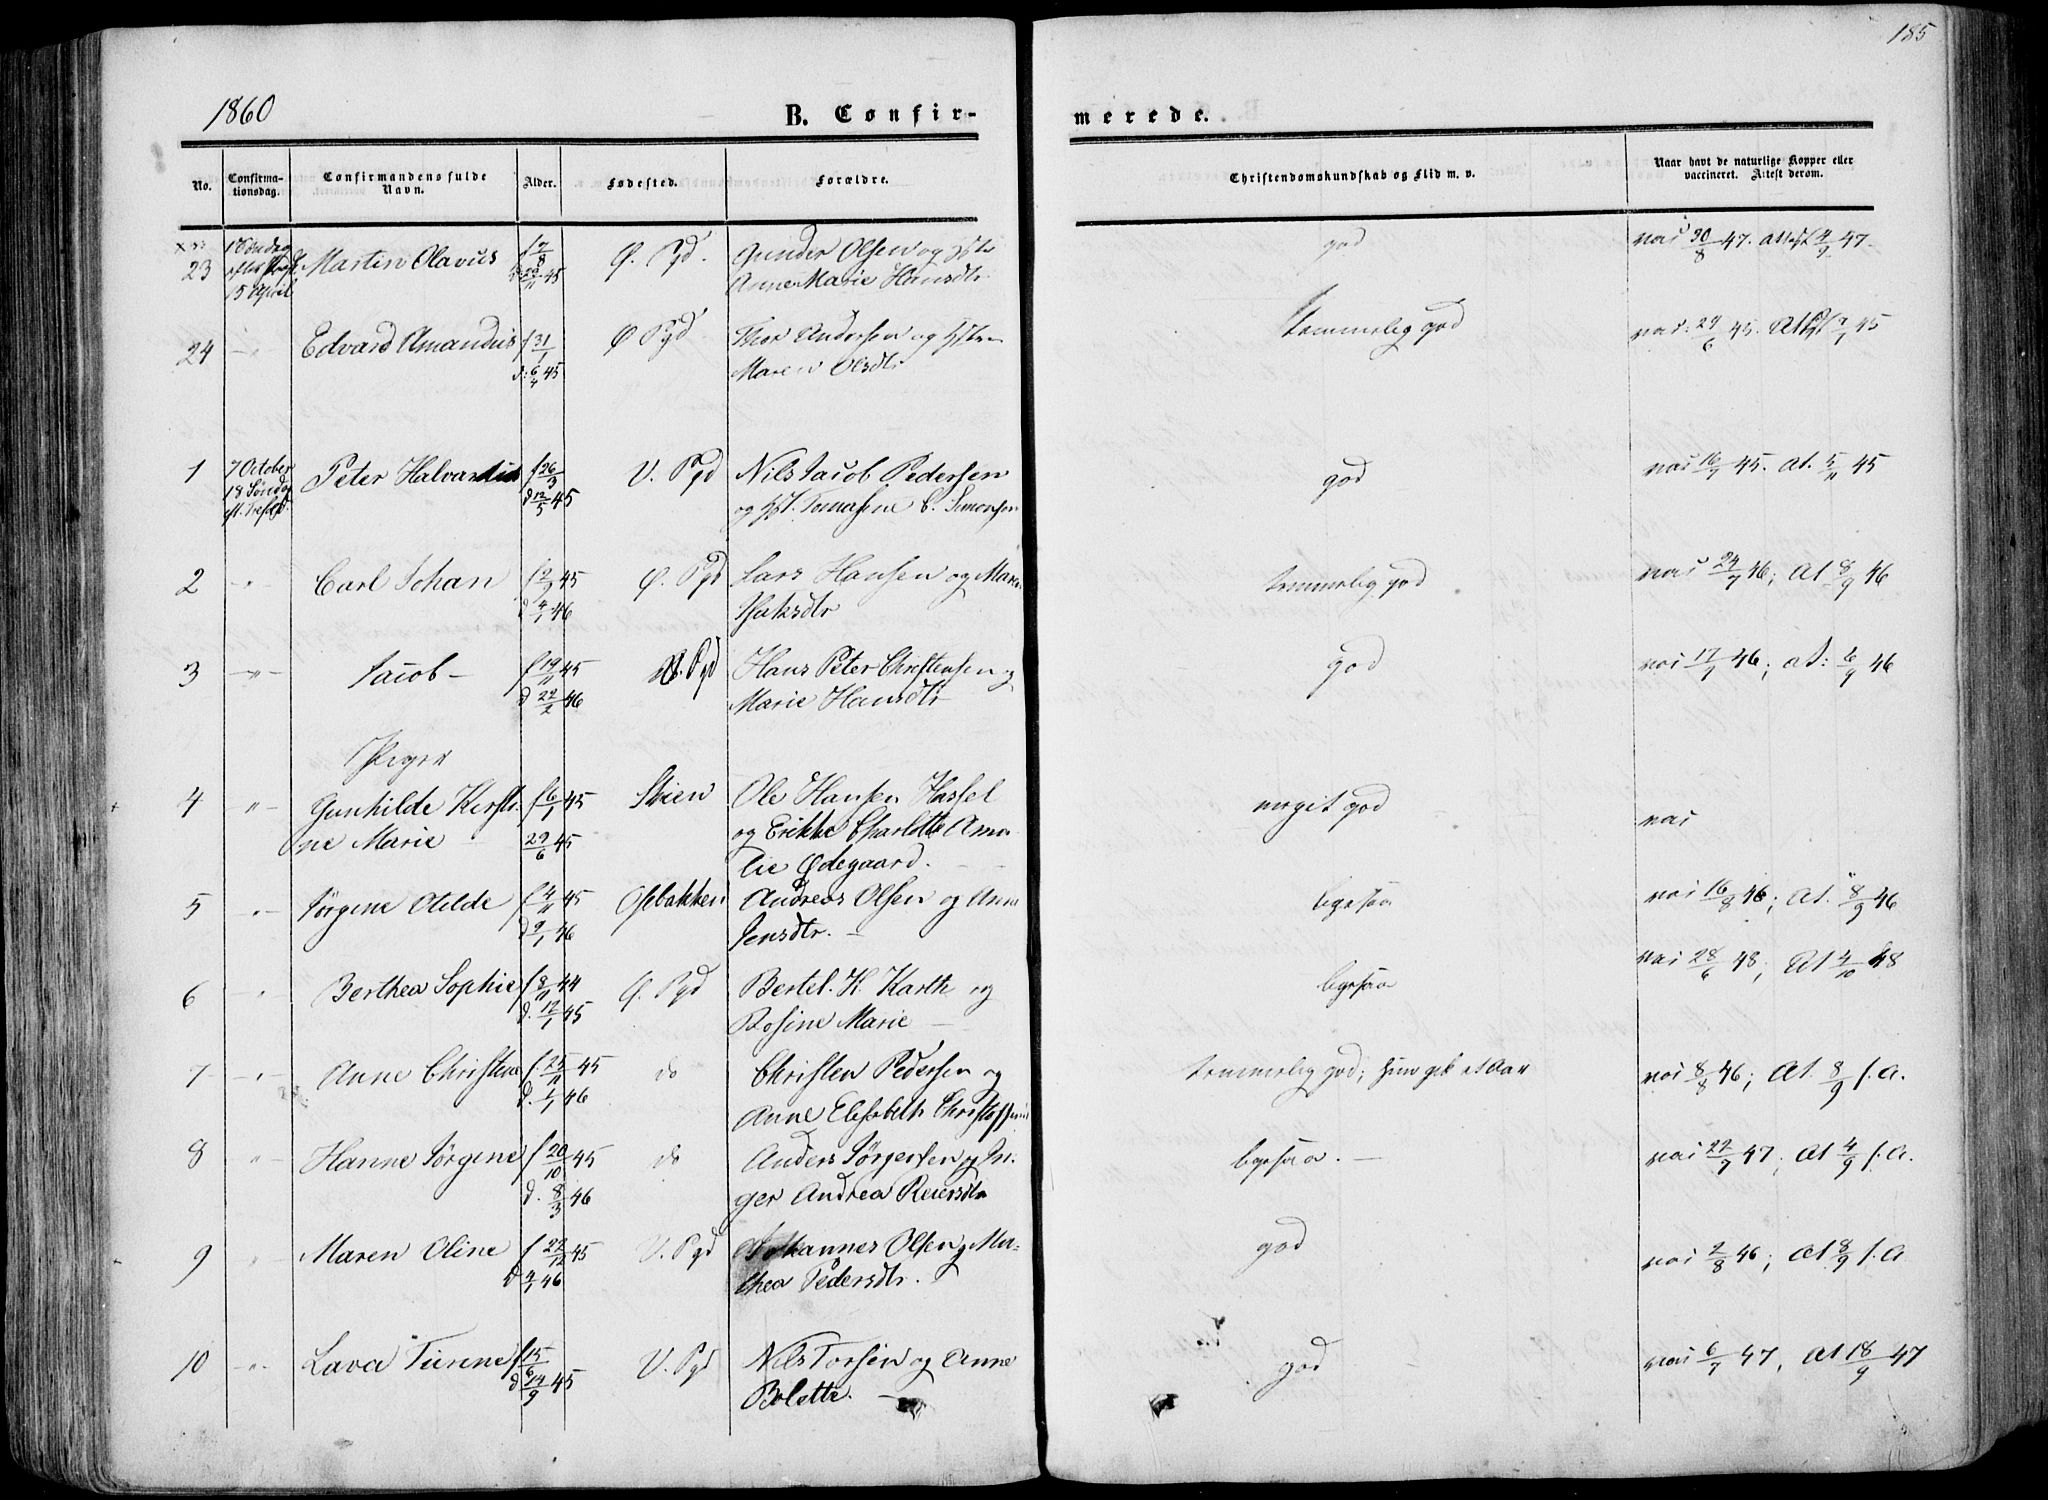 185
1860
B. Confir-
merede.
No.
Confirma-
tionsdag.
Confirmandens fulde
Navn.
Alder.
Fødested.
Forældre.
Christendomskundskab og Flid m. v.
Naar havt de naturlige Kopper eller
vaccineret. Attest derom.
23
15 April
Martin Olavus
f 7/8
45
Ø. Pgd.
Gunder Olsen og Hstr
Anne Marie Hansdtr
god
vac 30/8 47. attest 4/9 47.
24
Edvard Amandus
f 31/1
d: 6/4 45
Ø Pgd
Thor Andersen og Hstr
Maren Olsdtr
temmelig god
45
1
7 October
18 Søndag
eft. Trefold.
Peter Halvardus
f 26/3
d 12/5 45
V. Pgd
Nils Jacob Pedersen
og Hst. Tomasene C. Simonsen
god
vac 16/7 45. At. 5/11 45
2
Carl Johan
f 2/9 45
d 4/1 46
Ø. Pgd
Lars Hansen og Maren
Isaksdtr
temmelig god
vac 24/7 46; At 8/9 46
3
Jacob
f 19/11 45
d 22/2 46
Pgd
Hans Peter Christensen og
Marie Hansdtr
god
vac 17/7 46; at: 6/9 46
Piger
4
Gunhilde Kirsti-
ne Marie
f 6/1 45
29/6 45
Skien
Ole Hansen Hassel
og Erikke Charlotte Ama-
lie Ødegaard.
meget god
vac
5
Jørgine Otilde
f 4/11 45
d 9/1 46
Osebakken
Andreas Olsen og Anne
Jensdtr.
ligesaa
vac 16/8 46; At. 8/9 46
6
Berthea Sophie
f 8/11 44
d. 12/1 45
Ø. Pgd
Bertel. K. Karth og
Rosine Marie
ligesaa
vac 28/6 48; At 4/10 48
7
Anne Christine
f. 25/11 45
d. 1/1 46
do
Christen Pedersen og
Anne Elisabeth Christoffersd
temmelig god; hun gik et Aar
vac 8/8 46; At. 8/9 s. A.
8
Hanne Jørgine
f 20/10 45
d. 8/3 46
do
Anders Jørgensen og In-
ger Andrea Reiersdtr
ligesaa.
vac 22/7 47; At 4/9 s. A.
9
Maren Oline
f 22/12 45
46
V. Pgd
Johannes Olsen og Mar-
thea Pedersdtr.
god
vac 2/8 46; At 8/9 s. A
10
Lava Tinne
f 15/6
d 14/9 45
V. Pgd
Nils Torsen og Anne
Bolette.
god
vac 6/7 47, At 18/9 47